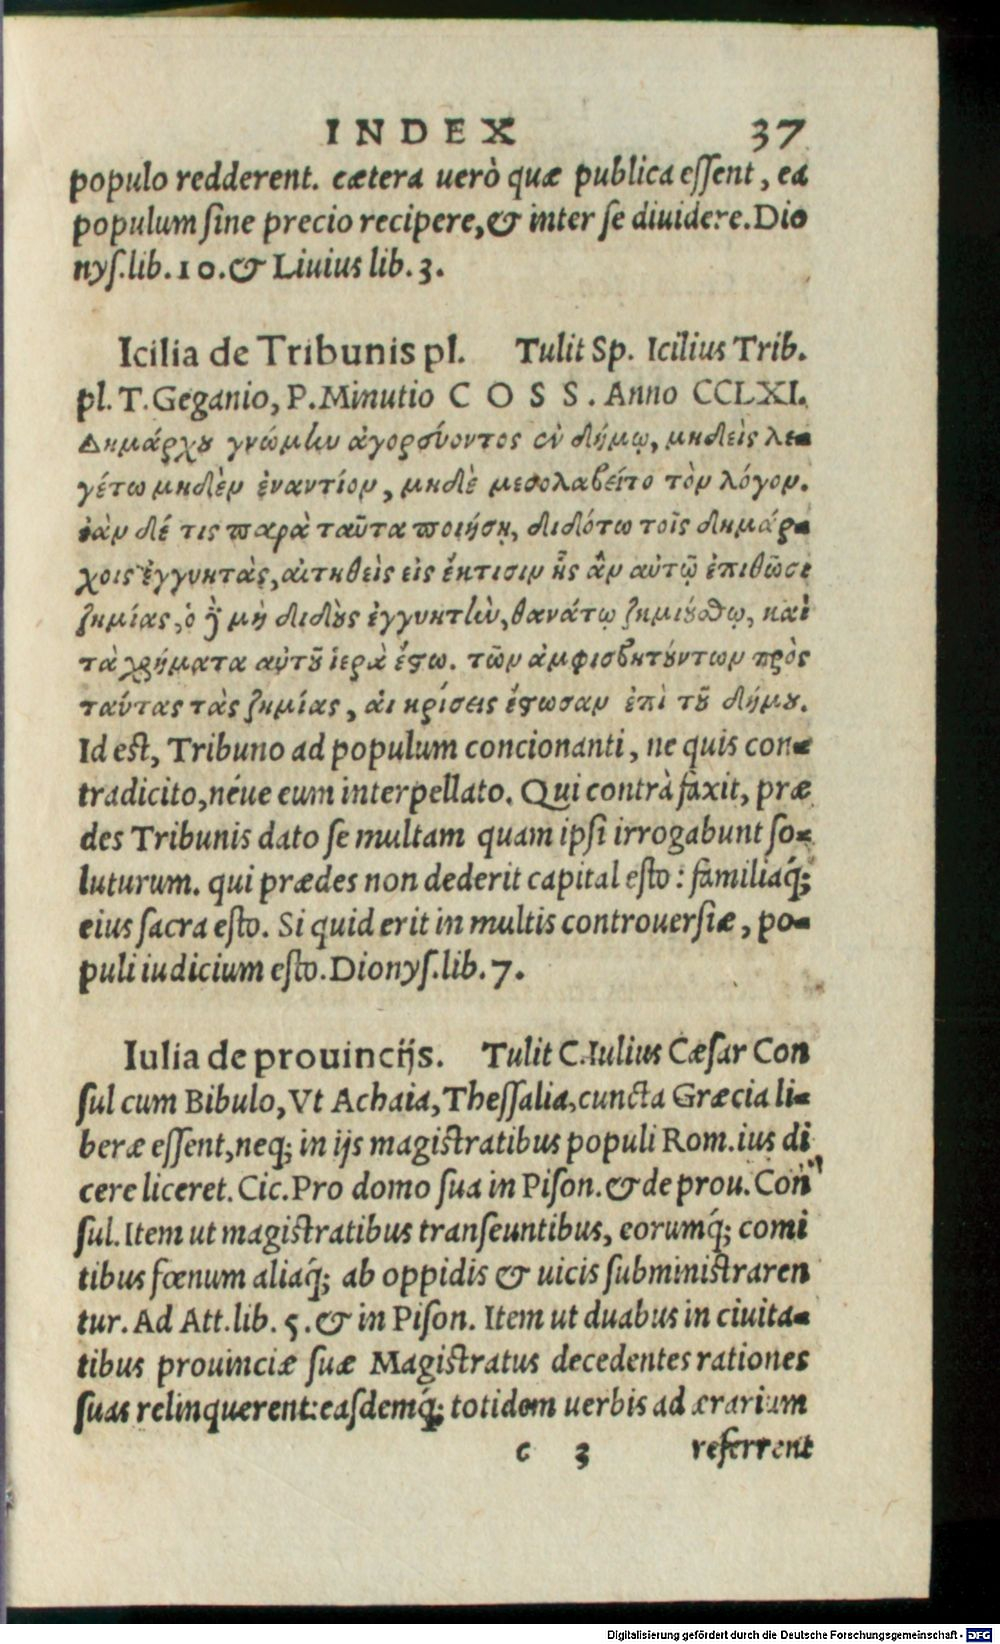 INDEX 37
populo redderent. cætera uerò quæ publica essent, ea
populum sine precio recipere, & inter se diuidere. Dio
nys. lib. 10. & Liuius lib. 3.
Icilia de Tribunis pl. Tulit Sp. Icilius Trib.
pl. T. Geganio, P. Minutio COSS. Anno CCLXI.
Δημάρχου γνώμην ἀγορεύοντος ἐν δήμῳ, μηδεὶς λε-
γέτω μηδὲν ἐναντίον, μηδὲ μεσολαβείτο τὸν λόγον.
ἐὰν δέ τις παρὰ ταῦτα ποιήσῃ, διδότω τοῖς δημάρ-
χοις ἐγγυητὰς, αἰτηθεὶς εἰς ἔκτισιν ἧς ἂν αὐτῷ ἐπιθῶσι
ζημίας, ὁ δὲ μὴ διδοὺς ἐγγυητὴν, θανάτῳ ζημιούσθω, καὶ
τὰ χρήματα αὐτοῦ ἱερὰ ἔστω. τῶν ἀμφισβητούντων πρὸς
ταύτας τὰς ζημίας, αἱ κρίσεις ἔστωσαν ἐπὶ τοῦ δήμου.
Id est, Tribuno ad populum concionanti, ne quis con-
tradicito, néue eum interpellato. Qui contrà faxit, præ
des Tribunis dato se multam quam ipsi irrogabunt so-
luturum. qui prædes non dederit capital esto: familiaq́;
eius sacra esto. Si quid erit in multis controuersiæ, po-
puli iudicium esto. Dionys. lib. 7.
Iulia de prouincijs. Tulit C. Iulius Cæsar Con
sul cum Bibulo, Vt Achaia, Thessalia, cuncta Græcia li-
beræ essent, neq; in ijs magistratibus populi Rom. ius di
cere liceret. Cic. Pro domo sua in Pison. & de prou. Con
sul. Item ut magistratibus transeuntibus, eorumq́; comi
tibus fœnum aliaq́; ab oppidis & uicis subministraren
tur. Ad Att. lib. 5. & in Pison. Item ut duabus in ciuita-
tibus prouinciæ suæ Magistratus decedentes rationes
suas relinquerent: easdemq́; totidem uerbis ad ærarium
c 3 referrent
Digitalisierung gefördert durch die Deutsche Forschungsgemeinschaft - DFG